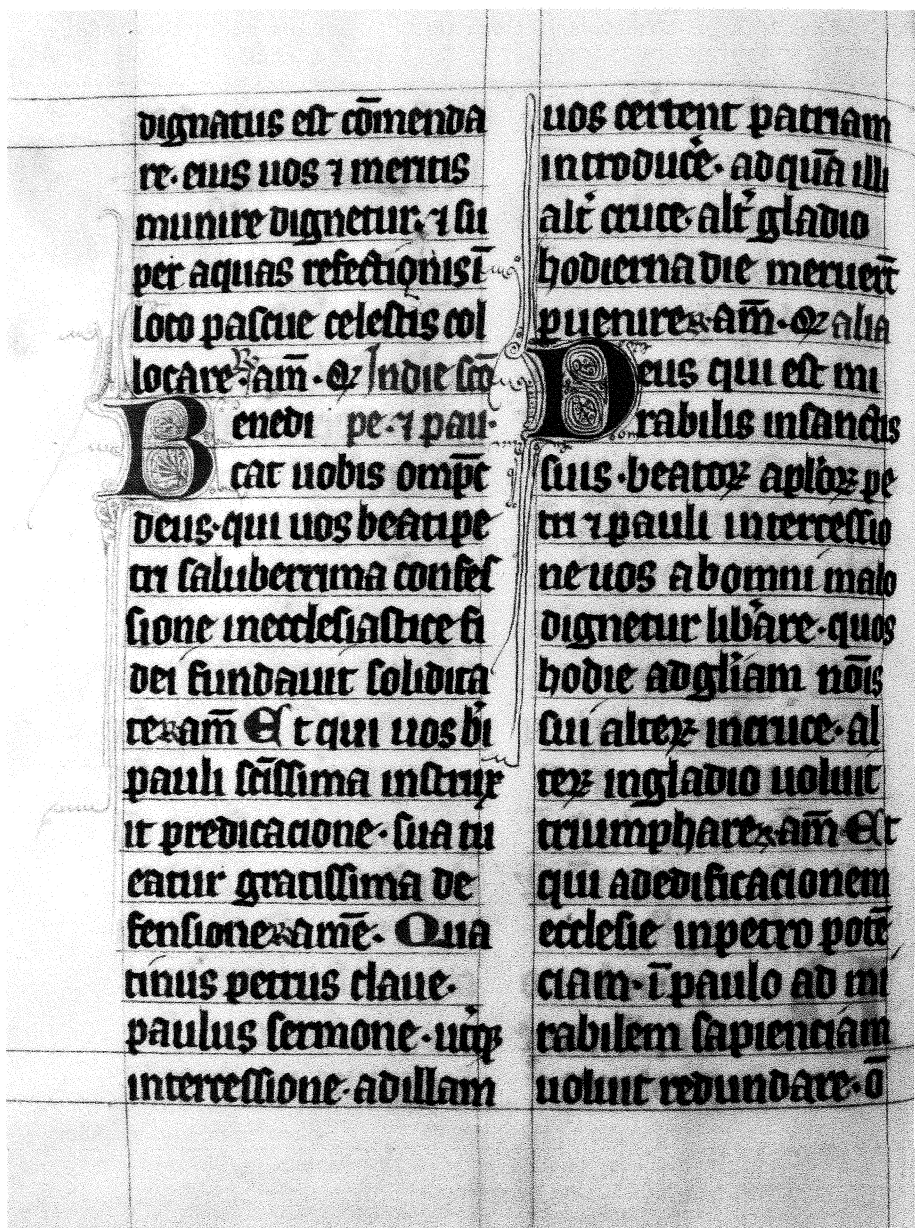 dignatus est cōmenda
re· eius uos ⁊ meritis
munire dignetur· ⁊ su
per aquas refectionis ī
loco pascue celestis col
locare· am̄· Or̄ In die sc̄o
Benedi pe· ⁊ pau·
cat uobis omp̄c
deus· qui uos beati pe
tri saluberrima confes
sione in ecclesiastice fi
dei fundauit solidita
te am̄ Et qui uos bī
pauli sc̄issima instrux
it predicacione· sua tu
eatur gratissima de
fensione amē· Qua
tinus petrus claue·
paulus sermone· utq̨
intercessione· ad illam
uos certent patriam
introducē· ad quā illi
alt̄ cruce· alt̄ gladio
hodierna die meruer̄t
puenire am̄· Or̄ alia
Deus qui est mi
rabilis in sanctis
suis· beatoꝝ aplōꝝ pe
tri ⁊ pauli intercessio
ne uos ab omni malo
dignetur lib̄are· quos
hodie ad gl̄iam nōīs
sui alteꝝ in cruce· al
teꝝ in gladio uoluit
triumphare am̄ Et
qui ad edificacionem
ecclesie in petro potē
ciam· ī paulo ad mi
rabilem sapienciam
uoluit redundare· ō